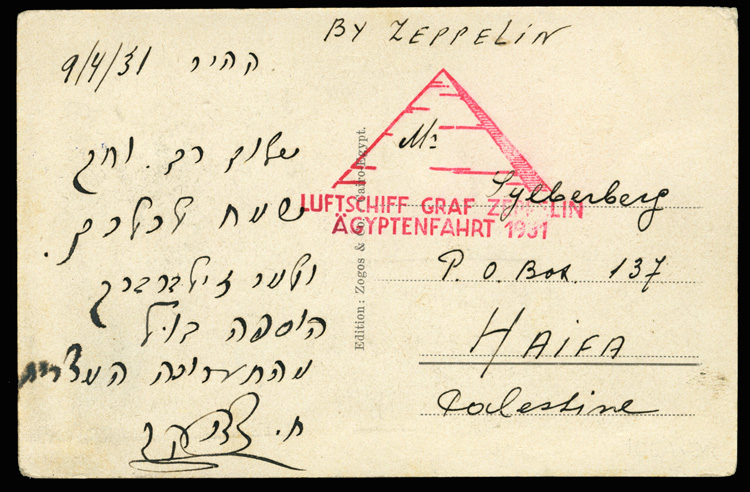 BY ZEPPELIN
קהיר 9/4/31
שלום רב. וחג
שמח לכולכם.
ולמר זילברברג
הוספה בול
מהתערוכה המצרית
ח.
Edition: Zogos & Co., Cairo-Egypt.
LUFTSCHIFF GRAF ZEPPELIN
ÄGYPTENFAHRT 1931
Mr
Sylberberg
P.O. Box. 137
HAIFA
Palestine